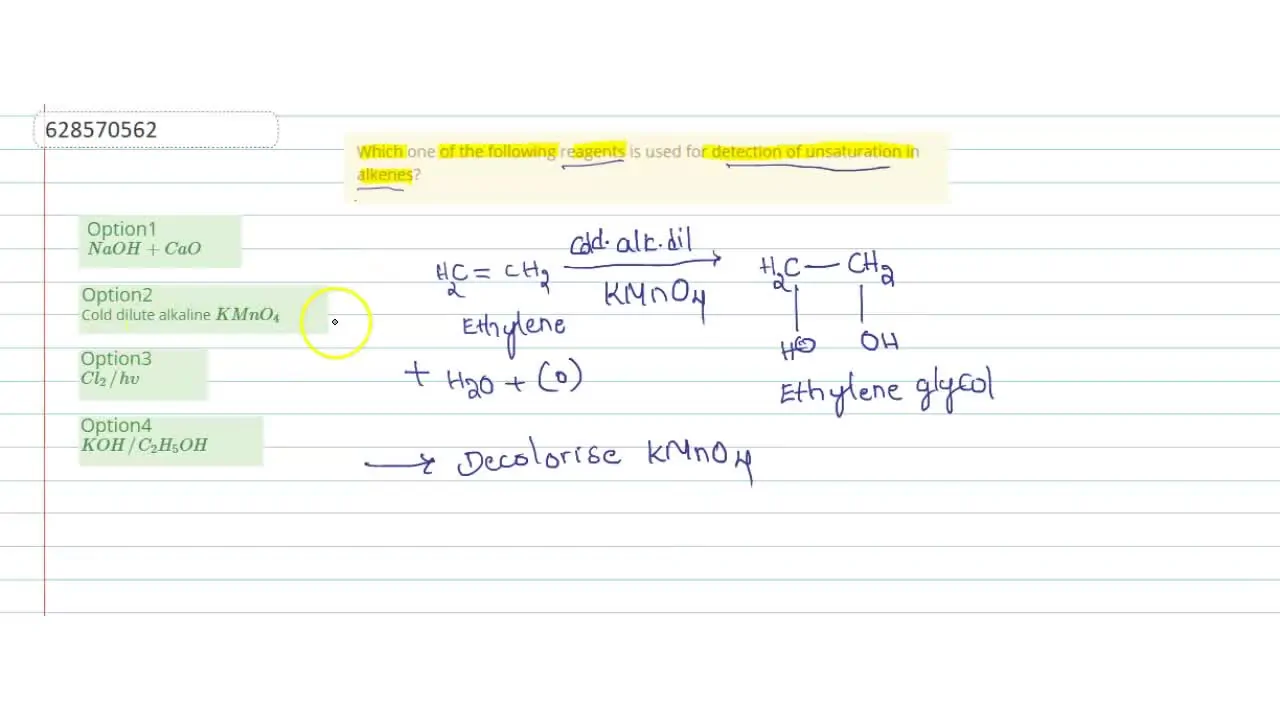 628570562
Which one of the following reagents is used for detection of unsaturation in
alkenes?
Option1
NaOH + CaO
Option2
Cold dilute alkaline KMnO₄
Option3
Cl₂/hν
Option4
KOH/C₂H₅OH
H₂C = CH₂
Cold. alk. dil
KMnO₄
H₂C — CH₂
HO OH
Ethylene
+ H₂O + (O)
Ethylene glycol
→ Decolorise KMnO₄